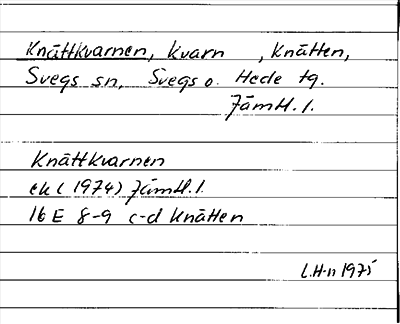 Knättkvarnen, kvarn , Knätten,
Svegs sn, Svegs o. Hede tg.
Jämtl. l.
Knättkvarnen
ek (1974) Jämtl. l.
16 E 8-9 c-d Knätten
L.H-n 1975